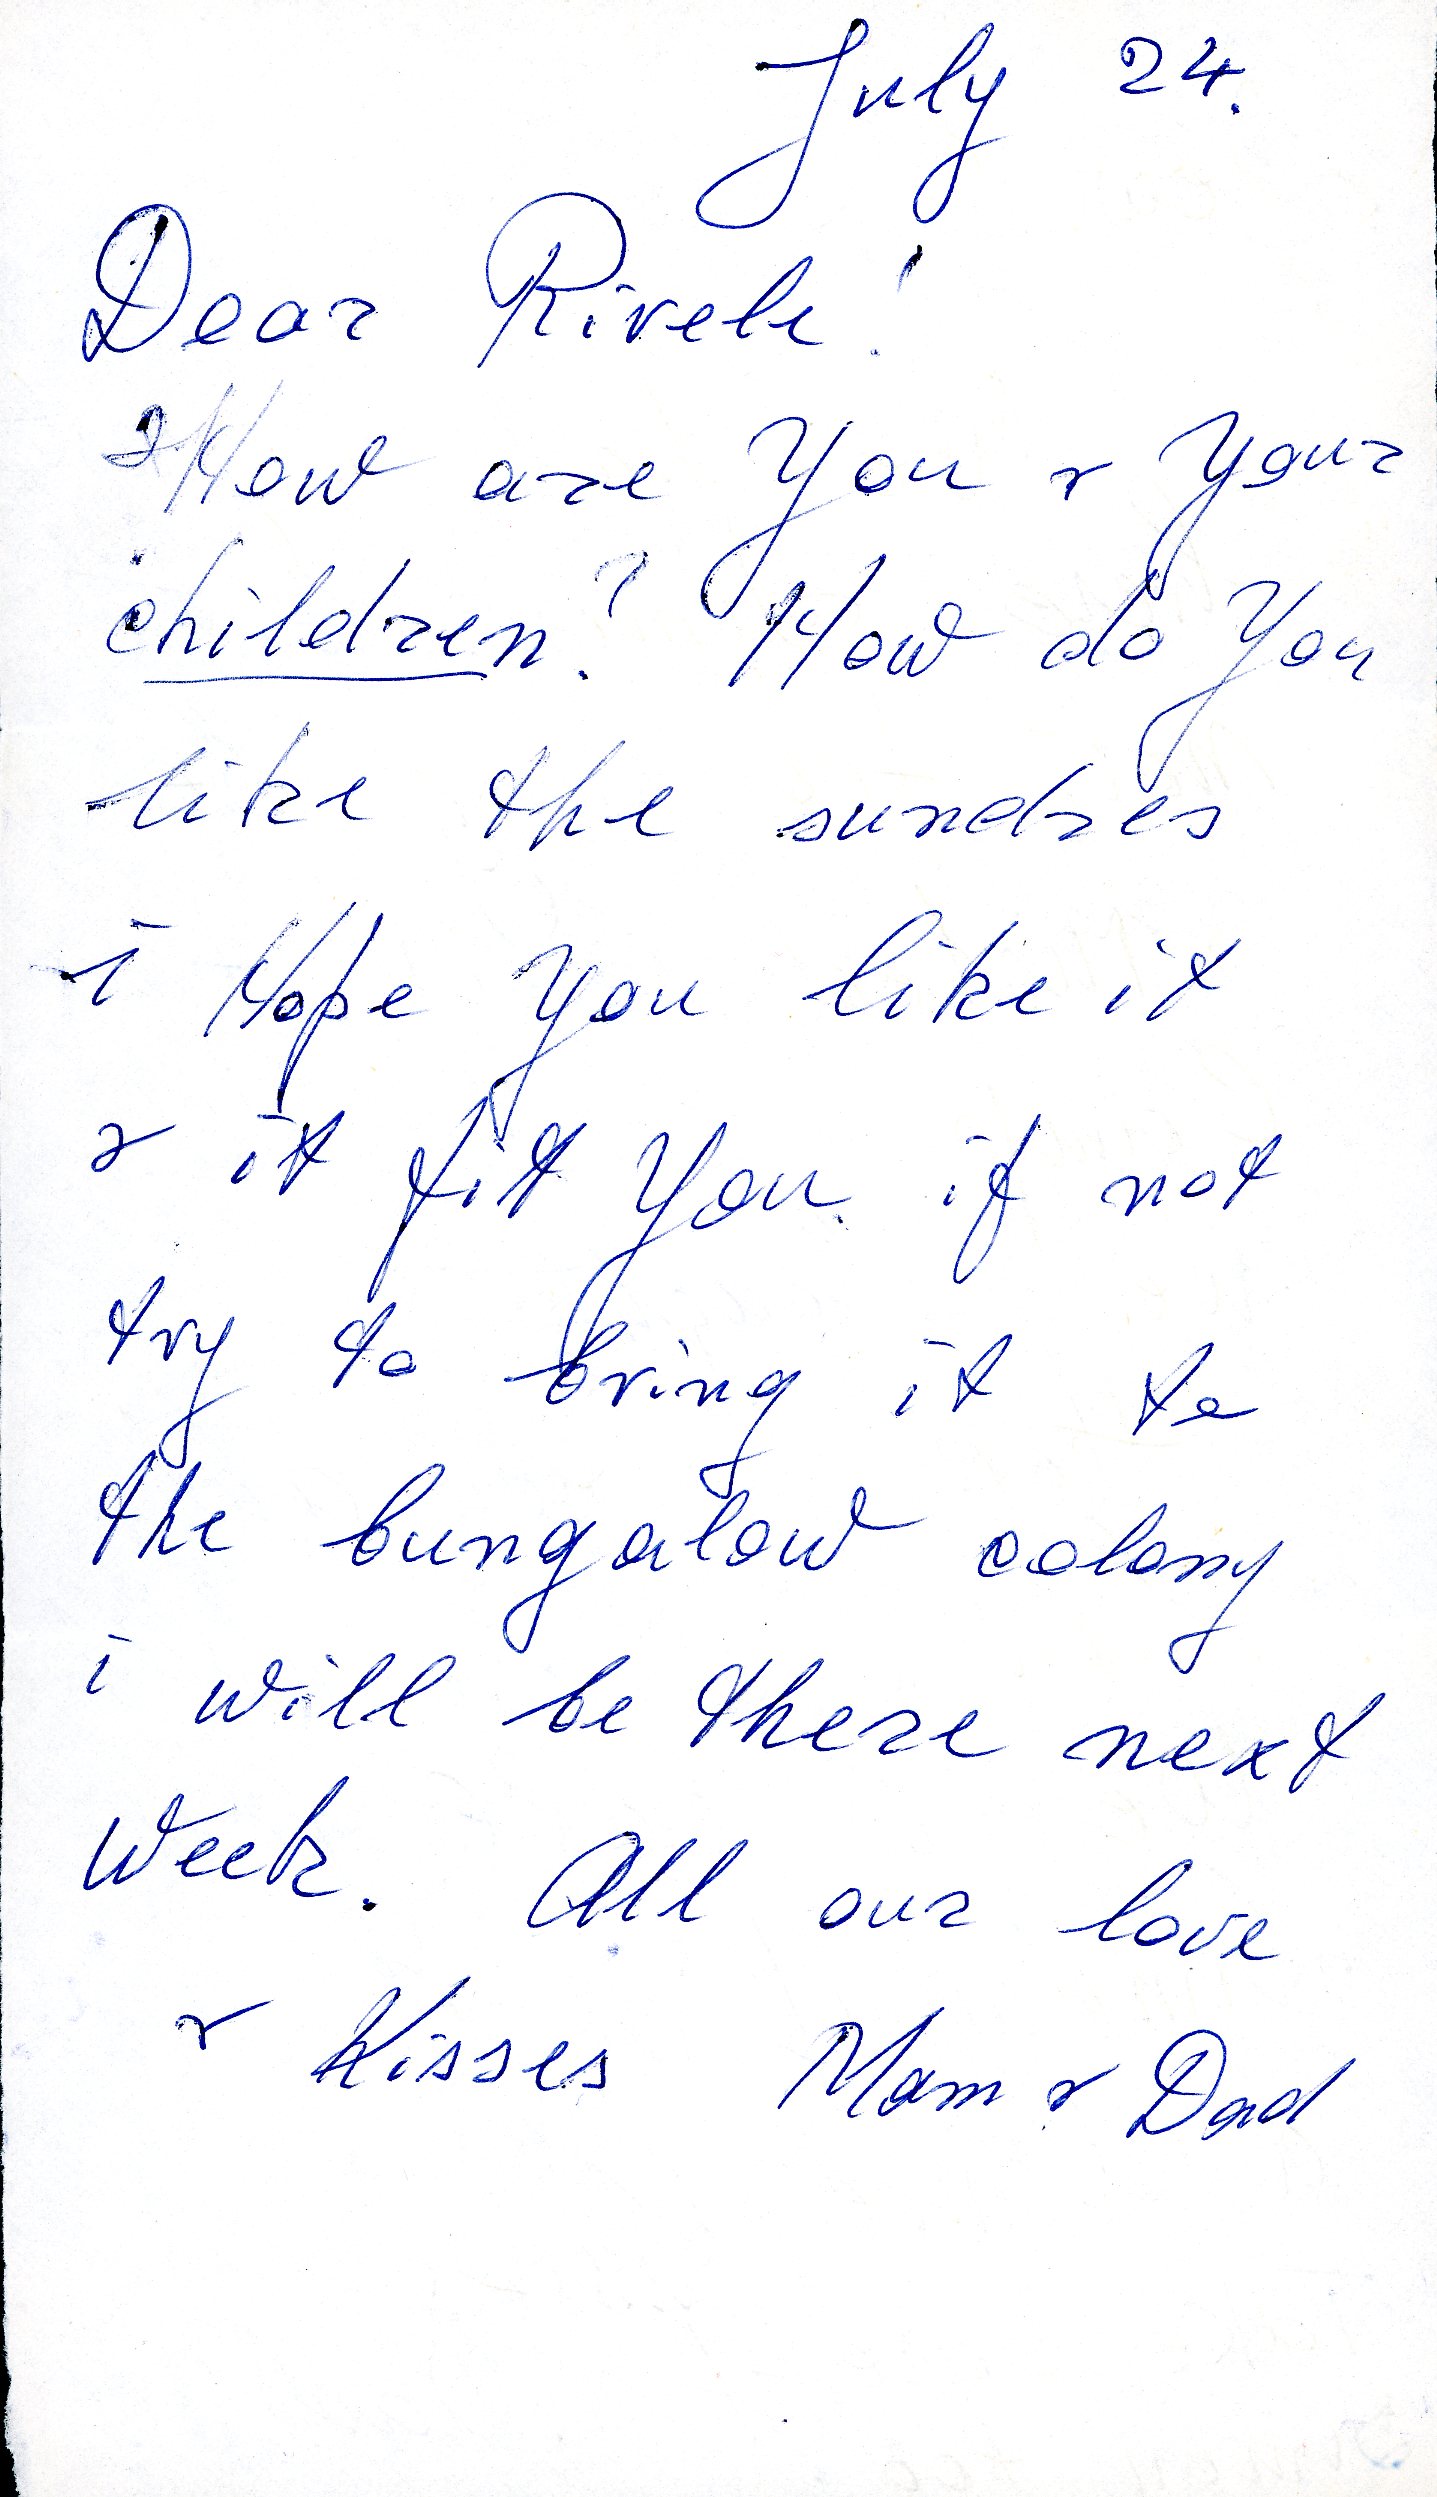 July 24.
Dear Rivele!
How are You & Your
children? How do You
like the sundres
i Hope You like it
& it fit You. if not
try to bring it to
the bungalow colony
i will be there next
Week. All our love
& Kisses Mom & Dad